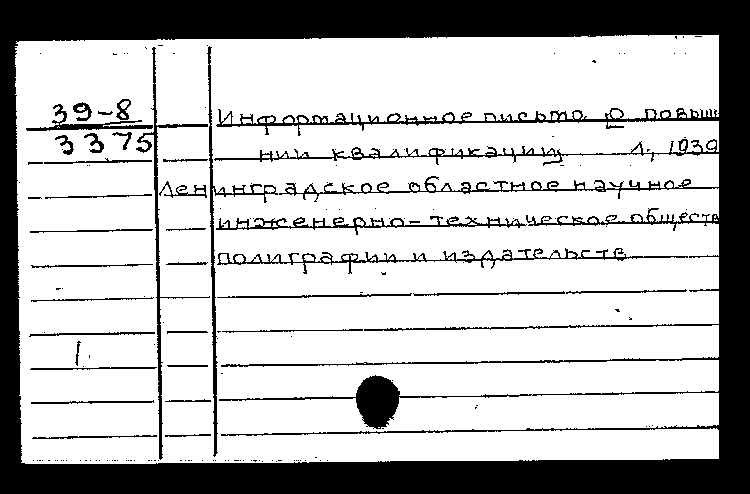 39-8
3375
Информационное письмо о повыш
нии квалификации Л., 1939
Ленинградское областное научное
инженерно-техническое обществ
полиграфии и издательств
1.